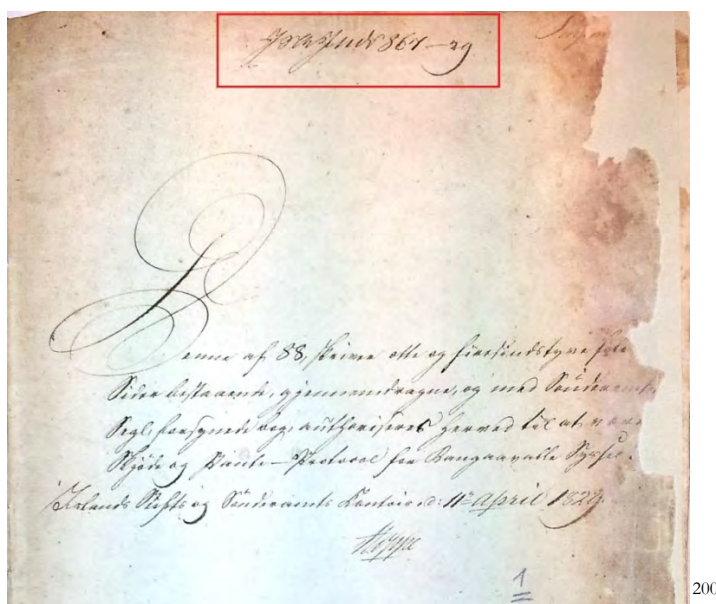 Isl: Journ: 867–29
Denne af 88, skriver otte og fiirsindstyve folie
Sider bestaaende, gjennemdragne, og med Sönderamtets
Segl, forsynede bog, authoriseres herved til at være
Skjöde og Pante–Protocol for Rangaavalle Syssel.
Islands Stifts og Sönderamts Contoir d: 11te April 1829.
Hoppe
1
200